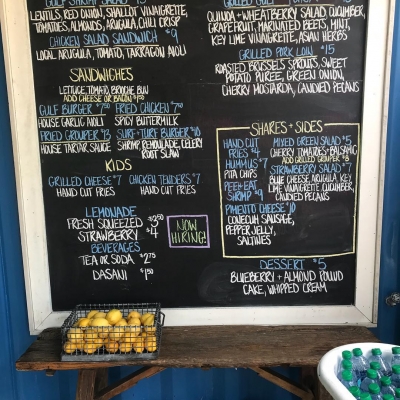 GULF SHRIMP
LENTILS, RED ONION, SHALLOT VINAIGRETTE,
TOMATIES, ALMONDS, ARUGULA, CHILI CRISP
CHICKEN SALAD SANDWICH $9
LOCAL ARUGULA, TOMATO, TARRAGON AIOLI
SANDWICHES
LETTUCE TOMATO BRIOCHE BUN
ADD CHEESE OR BACON
GULF BURGER $7.50 FRIED CHICKEN $7.50
HOUSE GARLIC AIOLI SPICY BUTTERMILK
FRIED GROUPER $13 SURF-TURF BURGER $10
HOUSE TARTAR SAUCE SHRIMP REMOULADE, CELERY
ROOT SLAW
KIDS
GRILLED CHEESE $7 CHICKEN TENDERS $7
HAND CUT FRIES HAND CUT FRIES
LEMONADE
FRESH SQUEEZED $3.50
STRAWBERRY $4
BEVERAGES
TEA OR SODA $2.75
DASANI $1.50
NOW
HIRING!
QUINOA + WHEATBERRY SALAD, CUCUMBER,
GRAPEFRUIT, MARINATED BEETS, MINT,
KEY LIME VINAIGRETTE, ASIAN HERBS
GRILLED PORK LOIN $15
ROASTED BRUSSELS SPROUTS, SWEET
POTATO PUREE, GREEN ONION,
CHERRY MOSTARDA, CANDIED PECANS
SHARES + SIDES
HAND CUT
FRIES $4
HUMMUS $7
PITA CHIPS
PEEL + EAT
SHRIMP $9
PIMENTO CHEESE $10
CONECUH SAUSAGE,
PEPPER JELLY,
SALTINES
MIXED GREEN SALAD $5
CHERRY TOMATOES + BALSAMIC
ADD GRILLED GROUPER $8
STRAWBERRY SALAD $7
BLUE CHEESE, ARUGULA, KEY
LIME VINAIGRETTE, CUCUMBER,
CANDIED PECANS
DESSERT $5
BLUEBERRY + ALMOND POUND
CAKE, WHIPPED CREAM